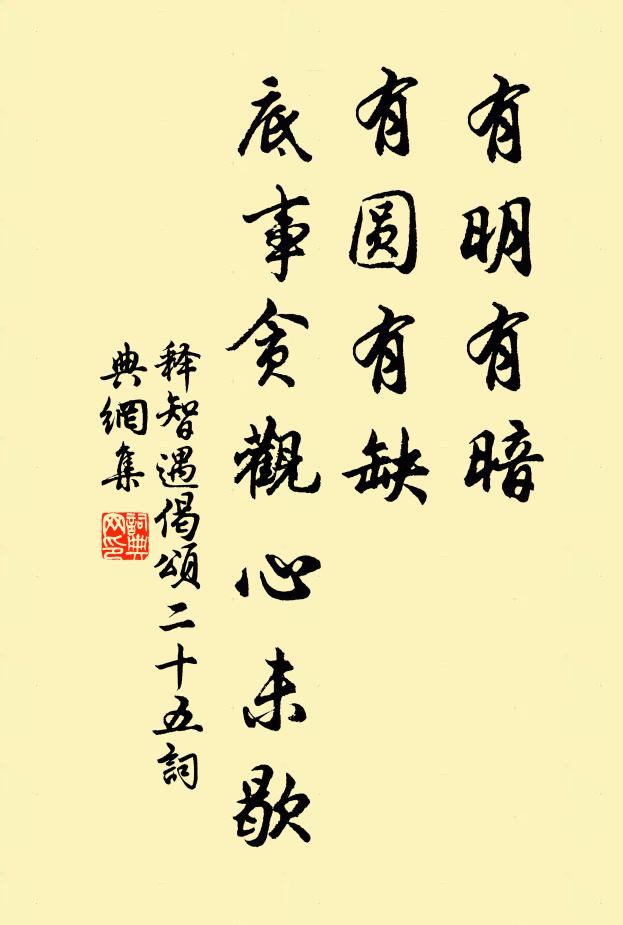 有明有暗
有圆有缺
底事贪觀心未歇
释智遇偈頌二十五詞
典網集
詞典网印